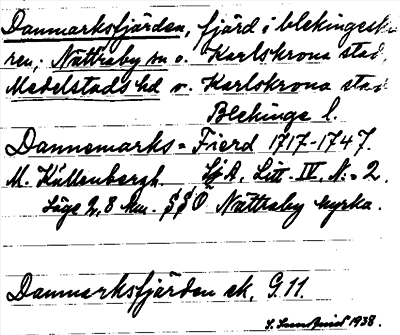 Danmarksfjärden, fjärd i blekingeskä
ren, Nättraby sn o. Karlskrona stad,
Medelstads hd o. Karlskrona stad
Blekinge l.
Dannemarks = Fierd 1717-1747.
M. Källenbergh. Sj. A. Litt. IV. N:= 2.
Läge 2,8 km. SSO Nättraby kyrka.
Danmarksfjärden ek. G.11.
1938.